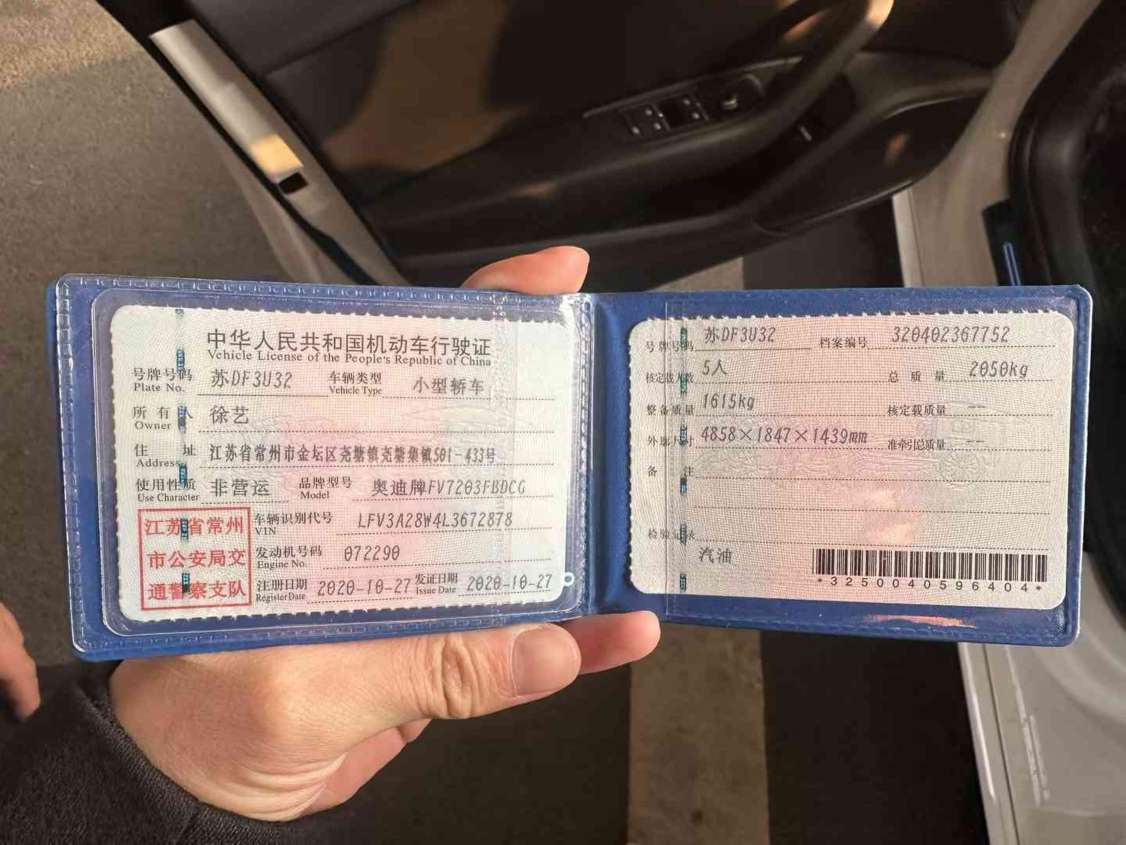 中华人民共和国机动车行驶证
Vehicle License of the People's Republic of China
号牌号码 苏DF3U32 车辆类型 小型轿车
Plate No. Vehicle Type
所有人 徐艺
Owner
住址 江苏省常州市金坛区尧塘镇尧塘集镇501-433号
Address
使用性质 非营运 品牌型号 奥迪牌FV7203FBDCG
Use Character Model
江苏省常州
市公安局交
通警察支队
车辆识别代号 LFV3A28W4L3672878
VIN
发动机号码 072290
Engine No.
注册日期 2020-10-27 发证日期 2020-10-27
Register Date Issue Date
号牌号码 苏DF3U32 档案编号 320402367752
核定载人数 5人 总质量 2050kg
整备质量 1615kg 核定载质量 --
外廓尺寸 4858×1847×1439mm 准牵引总质量 --
备注
检验记录
汽油
*3250040596404*